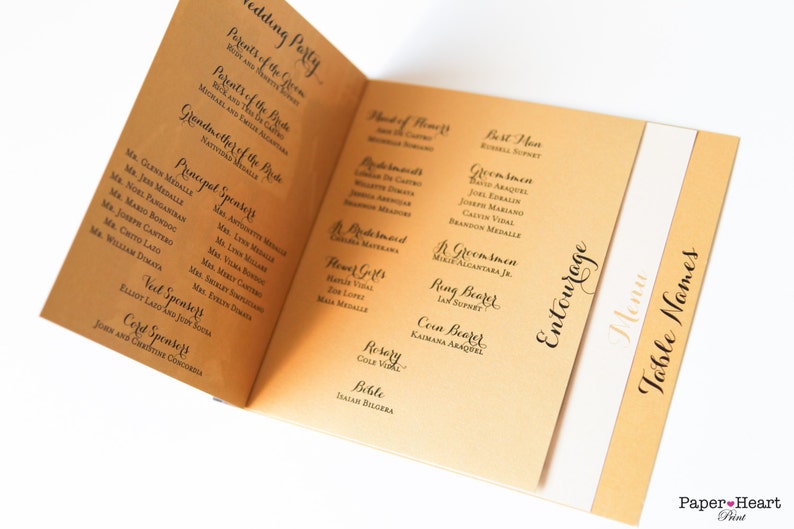 Wedding Party
Parents of the Groom
Rudy and Nenette Supnet
Parents of the Bride
Rick and Tess De Castro
Michael and Emilie Alcantara
Grandmother of the Bride
Natividad Medalle
Principal Sponsors
Mr. Glenn Medalle
Mr. Jess Medalle
Mr. Noel Panganiban
Mr. Mario Bondoc
Mr. Joseph Cantero
Mr. Chito Lazo
Mr. William Dimaya
Mrs. Antoinette Medalle
Mrs. Lynn Medalle
Ms. Lynn Millare
Mrs. Vilma Bondoc
Mrs. Merly Cantero
Mrs. Shirley Simpliciano
Mrs. Evelyn Dimaya
Veil Sponsors
Elliot Lazo and Judy Sousa
Cord Sponsors
John and Christine Concordia
Maid of Flowers
Ann De Castro
Michelle Soriano
Bridesmaids
Lorelie De Castro
Willette Dimaya
Jessica Abenojar
Shannon Meadors
Jr. Bridesmaid
Chelsea Mayerawa
Flower Girls
Haylie Vidal
Zoe Lopez
Maia Medalle
Rosary
Cole Vidal
Bible
Isaiah Bilgera
Best Man
Russell Supnet
Groomsmen
David Araquel
Joel Edralin
Joseph Mariano
Calvin Vidal
Brandon Medalle
Jr. Groomsmen
Mikie Alcantara Jr.
Ring Bearer
Ian Supnet
Coin Bearer
Kaimana Araquel
Entourage
Menu
Table Names
Paper Heart
Print